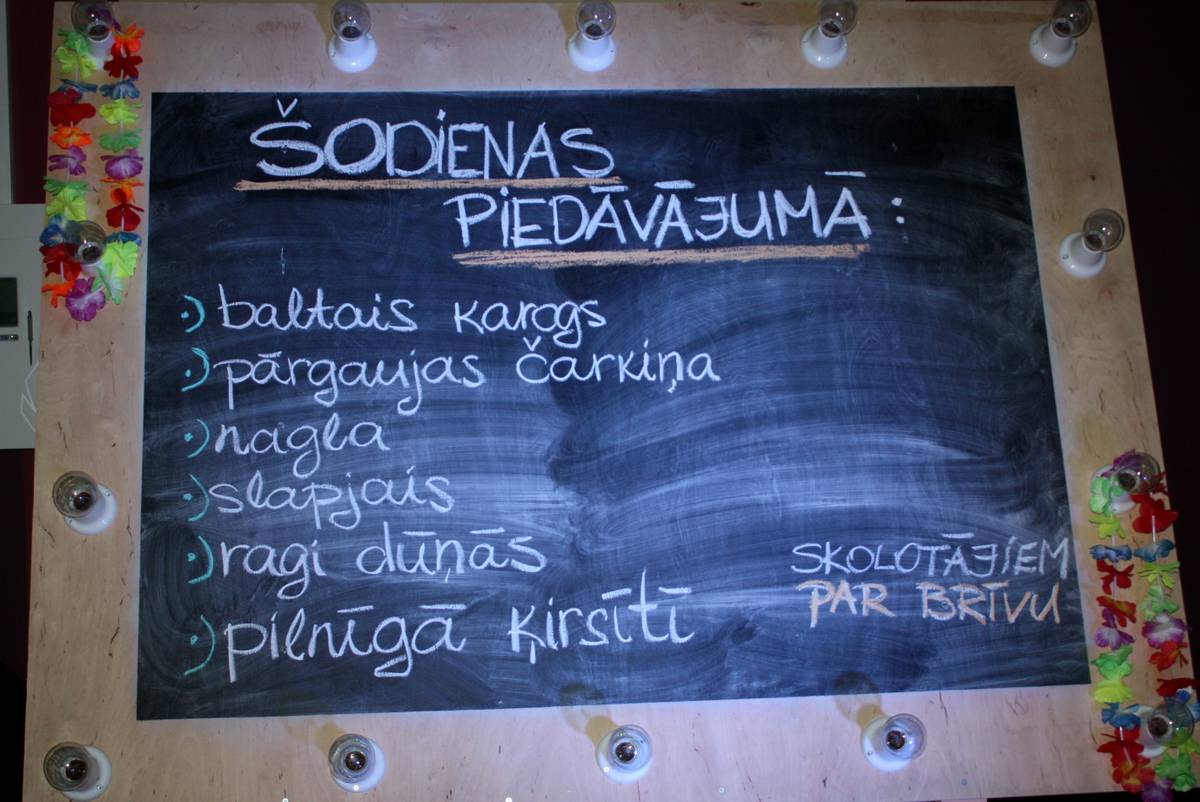 ŠODIENAS
PIEDĀVĀJUMĀ :
baltais karogs
pārgaujas čarkiņa
nagla
slapjais
ragi dūņās
pilnīgā ķirsītī
SKOLOTĀJIEM
PAR BRĪVU